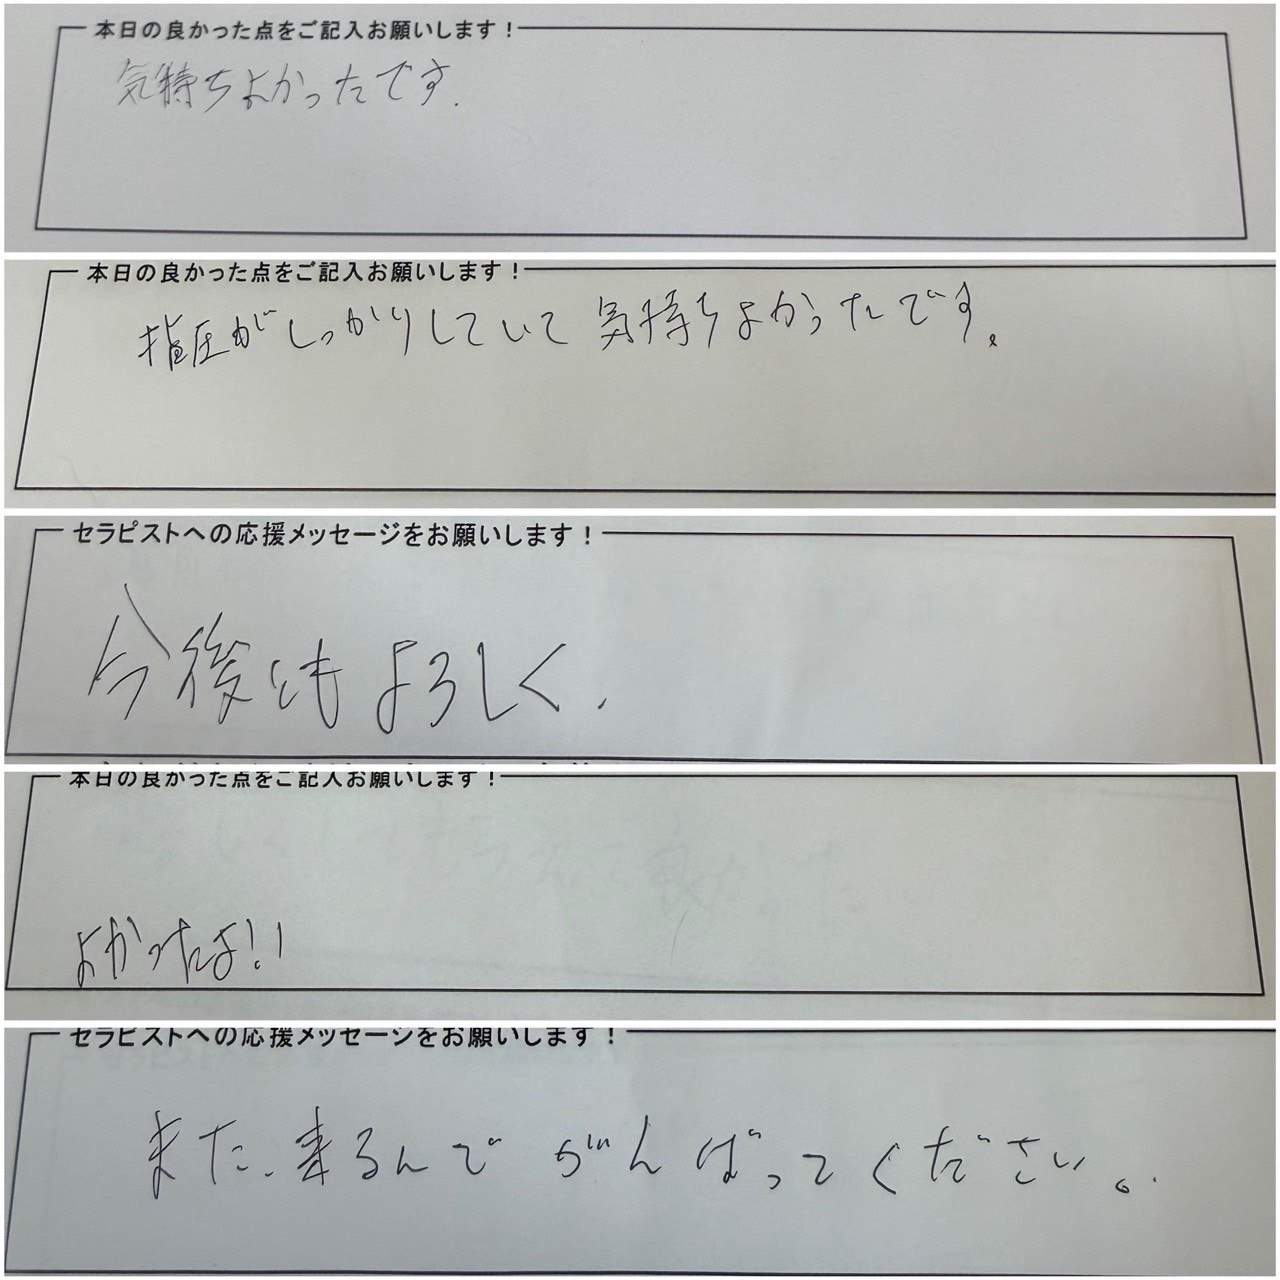 本日の良かった点をご記入お願いします！
気持ちよかったです.
本日の良かった点をご記入お願いします！
指圧がしっかりしていて気持ちよかったです。
セラピストへの応援メッセージをお願いします！
今後ともよろしく.
本日の良かった点をご記入お願いします！
よかったよ!!
セラピストへの応援メッセージをお願いします！
また、来るんでがんばってください。